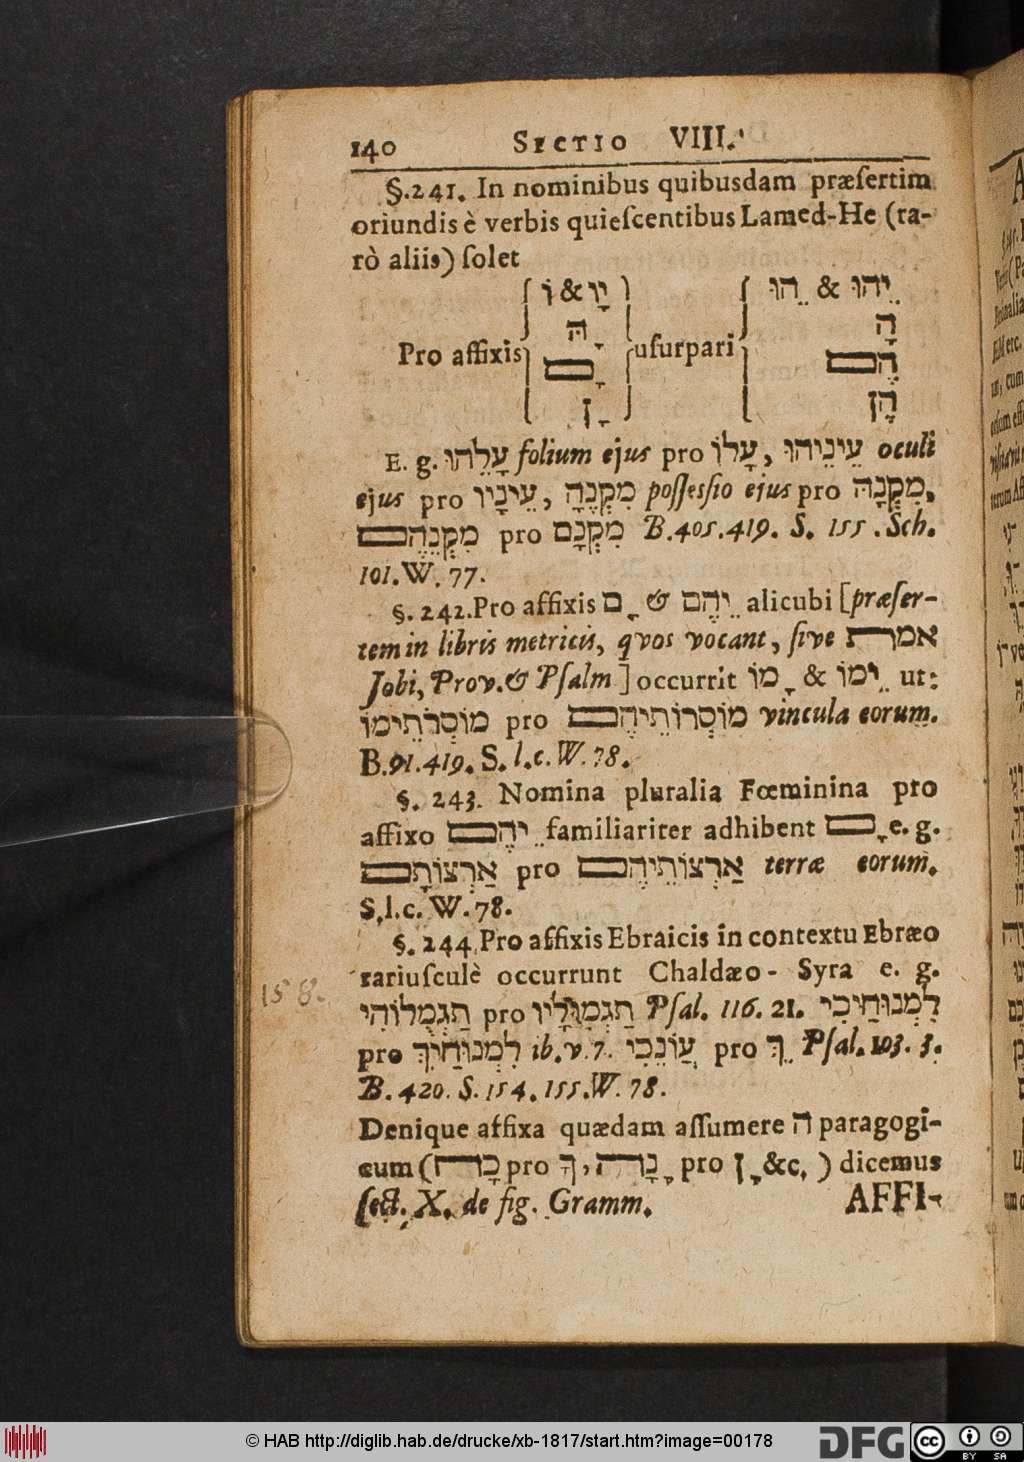 140 SECTIO VIII.
§.241. In nominibus quibusdam præſertim
oriundis è verbis quieſcentibus Lamed-He (ra-
rò aliis) ſolet
Pro affixis ָיו & וֹ ָהּ ָם ָן uſurpari ֵיהוּ & ֵהוּ הָ הֶם הָן
E. g. עָלֵהוּ folium ejus pro עָלוֹ, עֵינֵיהוּ oculi
ejus pro עֵינָיו, מִקְנֶהָ poſſeſſio ejus pro מִקְנָהּ,
מִקְנֵהֶם pro מִקְנָם B.405.419. S. 155. Sch.
101. W. 77.
§. 242. Pro affixis ָם & ֵיהֶם alicubi [præſer-
tem in libris metricis, qvos vocant, ſive אמת
Jobi, Prov. & Pſalm] occurrit ָמוֹ & ֵימוֹ ut:
מוֹסְרֹתֵימוֹ pro מוֹסְרוֹתֵיהֶם vincula eorum.
B.91.419. S. l.c. W. 78.
§. 243. Nomina pluralia Fœminina pro
affixo ֵיהֶם familiariter adhibent ָם e. g.
אַרְצוֹתָם pro אַרְצוֹתֵיהֶם terræ eorum.
S.l.c. W. 78.
§. 244. Pro affixis Ebraicis in contextu Ebræo
rariuſculè occurrunt Chaldæo- Syra e. g.
תַּגְמוּלוֹהִי pro תַּגְמוּלָיו Pſal. 116. 21. לִמְנוּחָיְכִי
pro לִמְנוּחַיִךְ ib. v. 7. עֲוֹנֵכִי pro ֵךְ Pſal. 103. 3.
B. 420. S. 154. 155. W. 78.
Denique affixa quædam aſſumere ה paragogi-
cum (כָה pro ךָ, ָנָה pro ָן &c.) dicemus
ſect. X. de fig. Gramm. AFFI-
158.
© HAB http://diglib.hab.de/drucke/xb-1817/start.htm?image=00178
DFG
cc BY SA